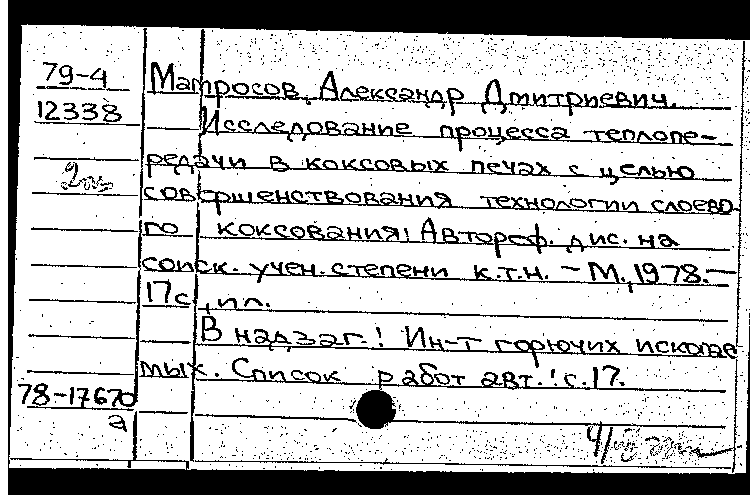 79-4 Матросов, Александр Дмитриевич.
12338 Исследование процесса теплопе-
редачи в коксовых печах с целью
совершенствования технологии слоево-
го коксования: Автореф. дис. на
соиск. учен. степени к.т.н. - М., 1978. -
17с., ил.
В надзаг.: Ин-т горючих ископае
мых. Список работ авт.: с. 17.
78-17670
а